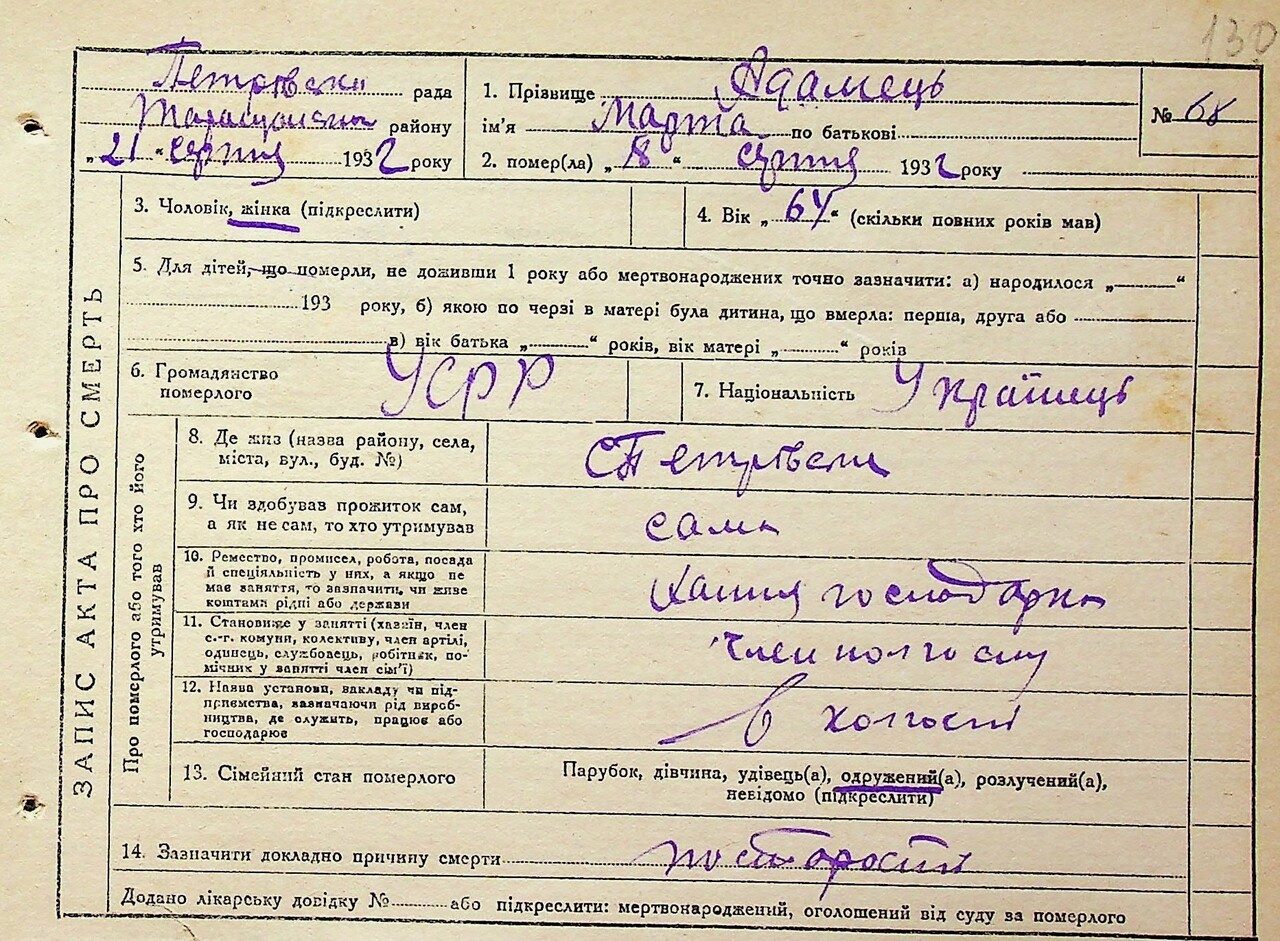 130
Петрівська рада
Таращанська району
„21“ серпня 1932 року
1. Прізвище Адамець
ім'я Марта по батькові
2. помер(ла) „18“ серпня 1932 року
№ 68
ЗАПИС АКТА ПРО СМЕРТЬ
3. Чоловік, жінка (підкреслити)
4. Вік „64“ (скільки повних років мав)
5. Для дітей, що померли, не доживши 1 року або мертвонароджених точно зазначити: а) народилося „ “
193 року, б) якою по черзі в матері була дитина, що вмерла: перша, друга або
в) вік батька „ “ років, вік матері „ “ років
6. Громадянство
померлого
УСРР
7. Національність Українець
Про померлого або того хто його
утримував
8. Де жив (назва району, села,
міста, вул., буд. №)
с Петрівська
9. Чи здобував прожиток сам,
а як не сам, то хто утримував
сама
10. Ремество, промисел, робота, посада
й спеціяльність у них, а якщо не
має заняття, то зазначити, чи живе
коштами рідні або держави
господарка
11. Становище у занятті (хазяїн, член
с.-г. комуни, колективу, член артілі,
одинець, службовець, робітник, по-
мічних у занятті член сім'ї)
член колгоспу
12. Назва установи, закладу чи під-
приємства, зазначаючи рід вироб-
ництва, де служить, працює або
господарює
в колгоспі
13. Сімейний стан померлого
Парубок, дівчина, удівець(а), одружений(а), розлучений(а),
невідомо (підкреслити)
14. Зазначити докладно причину смерти по старости
Додано лікарську довідку № або підкреслити: мертвонароджений, оголошений від суду за померлого